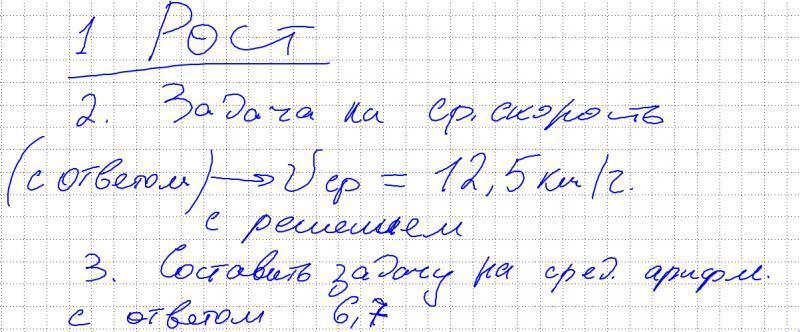 1 Рост
2. Задача на ср. скорость
(с ответом) → Vср = 12,5 км/г.
с решением
3. Составить задачу на сред. арифм.
с ответом 6,7